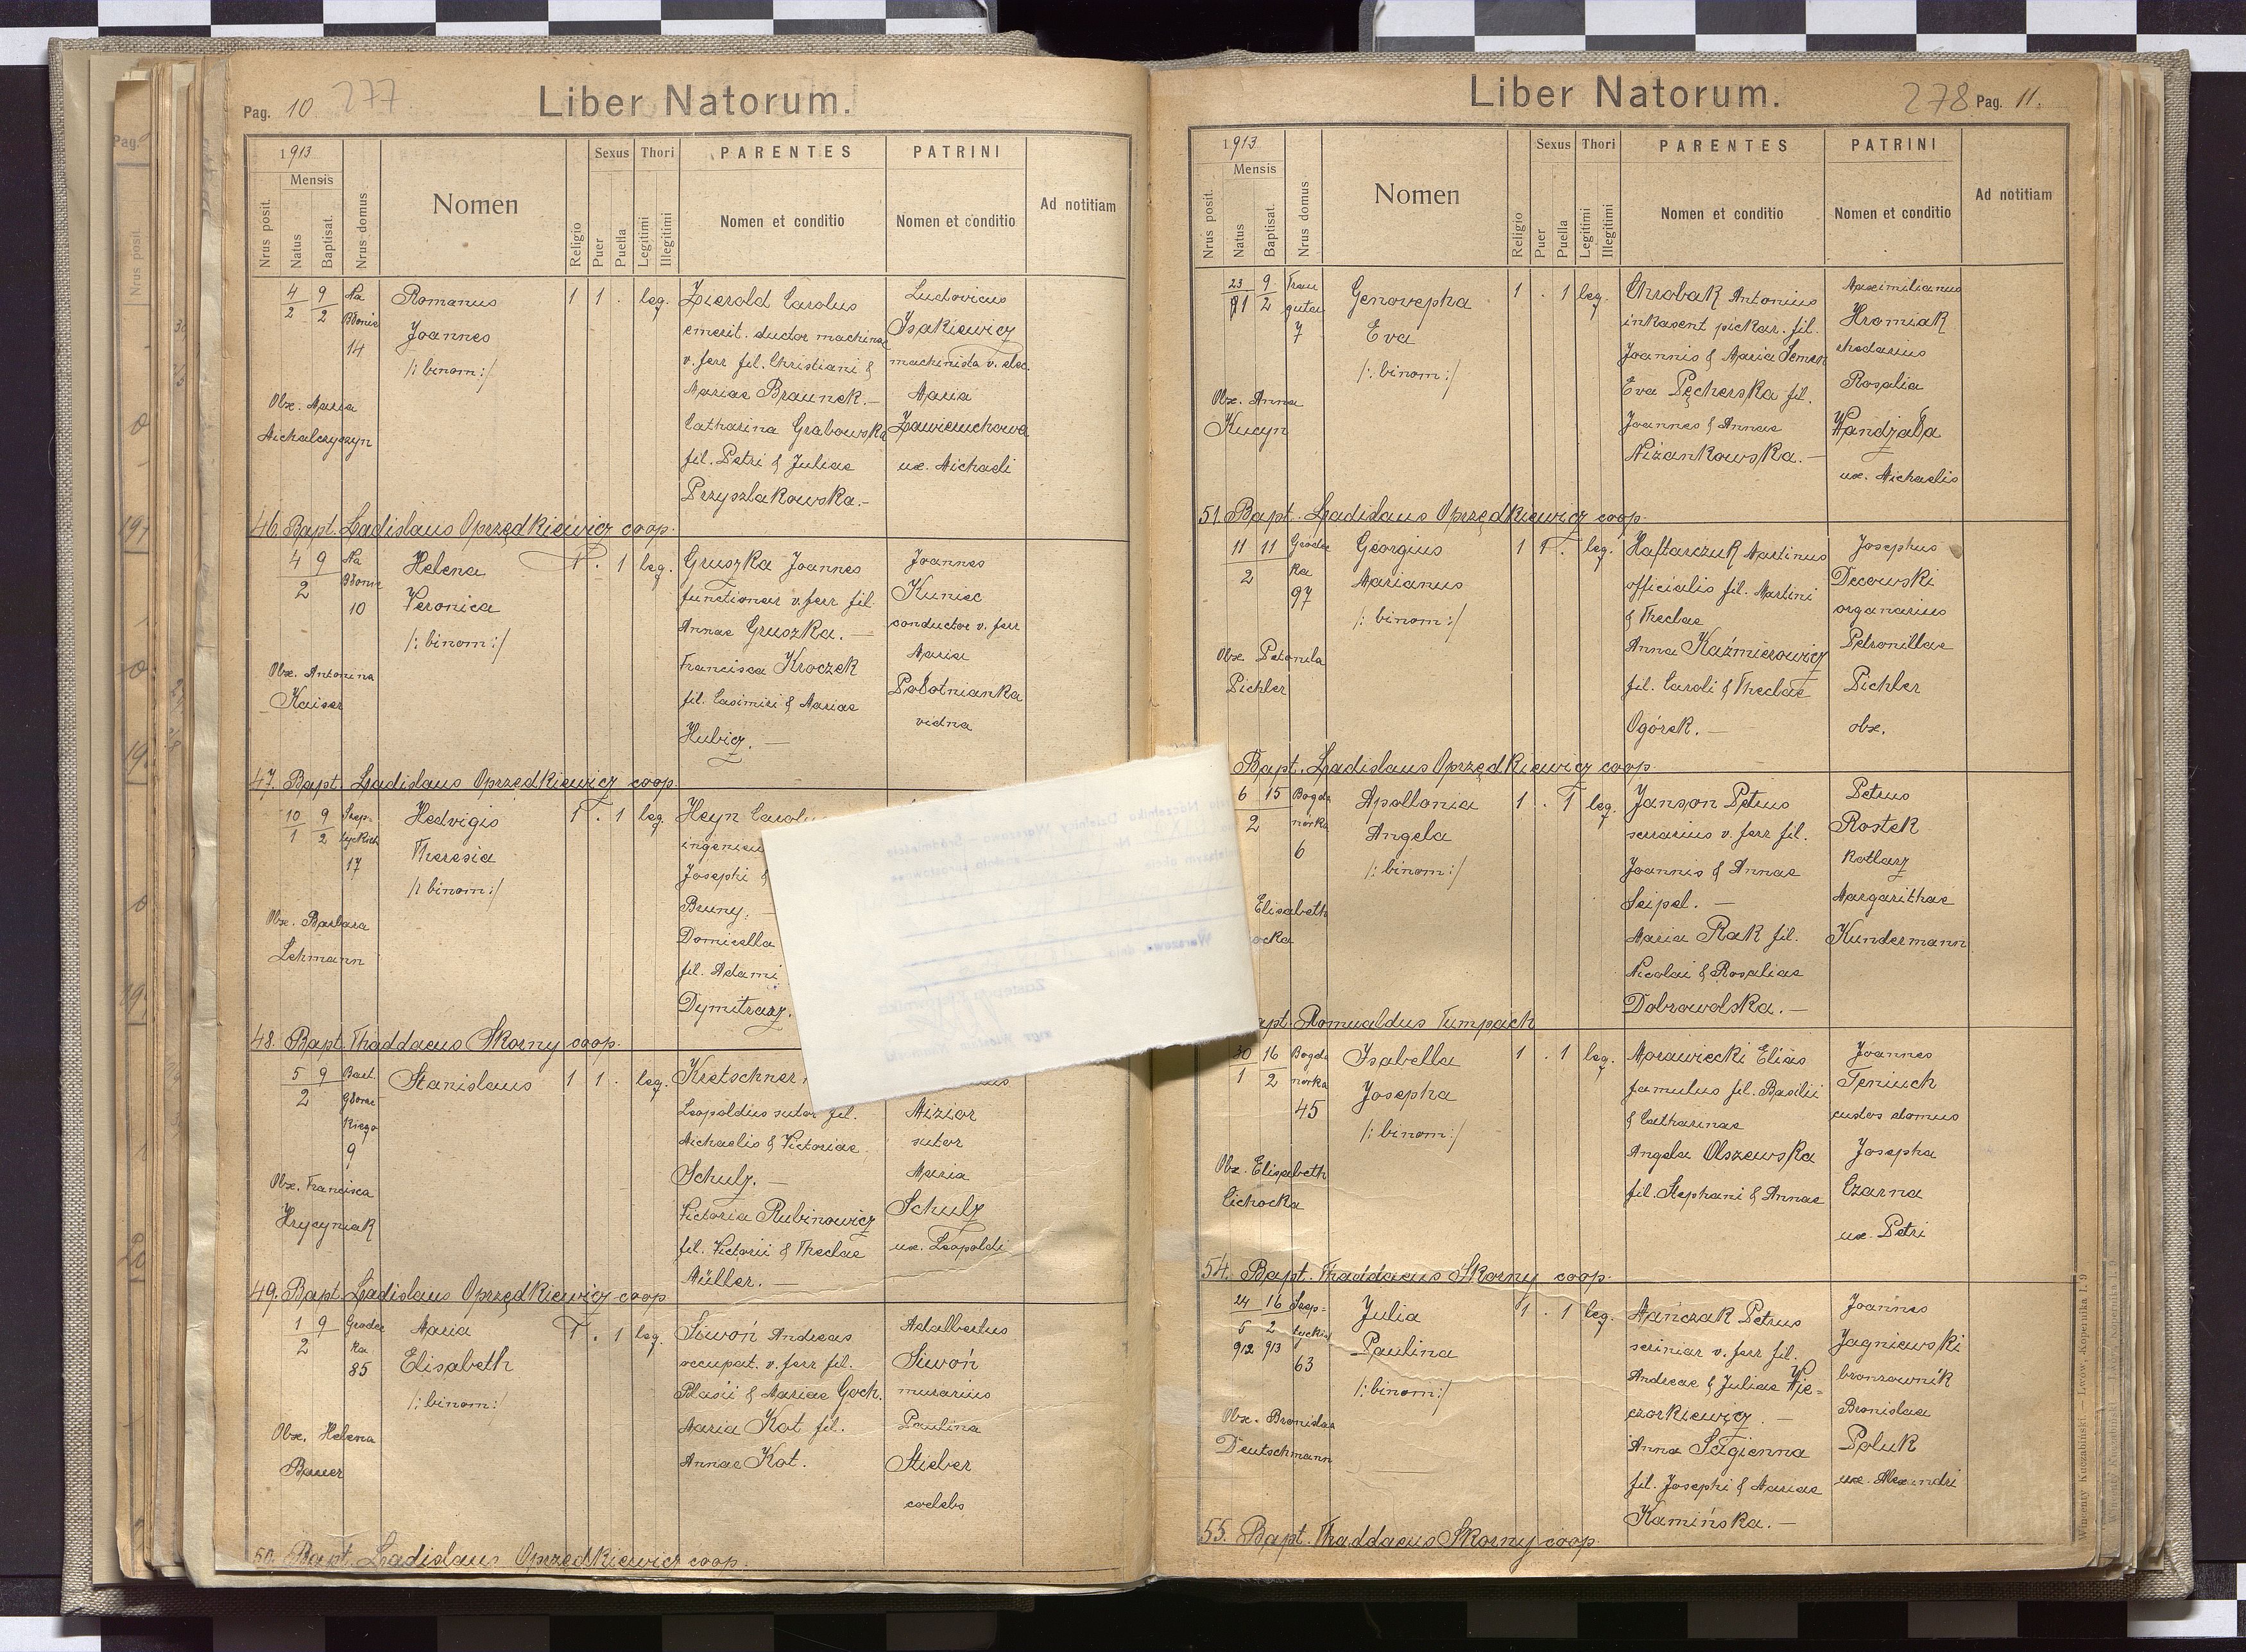 Pag. 10 277
Liber Natorum.
1913
Mensis
Nrus posit.
Natus
Baptisat.
Nrus domus
Nomen
Religio
Sexus
Puer
Puella
Thori
Legitimi
Illegitimi
PARENTES
Nomen et conditio
PATRINI
Nomen et conditio
Ad notitiam
4/2 9/2 Na Błonie 14
Romanus
Joannes
/: binom:/
1 1 . leg.
Zierold Carolus
emerit. ductor machinae
v. ferr fil. Christiani &
Mariae Braunek.—
Catharina Grabowska
fil. Petri & Juliae
Przyszlakowska.—
Ludovicus
Isakiewicz
machinista v. elec.
Maria
Zawieruchowa
ux. Michaeli
Obx. Maria
Michalczyszyn
46. Bapt. Ladislaus Oprzędkiewicz coop.
4 9 Na Błonie
2
10
Helena
Veronica
/: binom:/
1 . 1 leg.
Gruszka Joannes
functionar v. ferr fil.
Annae Gruszka. —
Francisca Kroczek
fil. Casimiri & Mariae
Hubicz. —
Joannes
Kuniec
conductor v. ferr
Maria
Połotnianka
vidna
Obx. Antonina
Kaiser
47. Bapt. Ladislaus Oprzędkiewicz coop.
10/1 9/2 Szep-
tyckich
17
Hedvigis
Theresia
/: binom:/
1 . 1 leg.
Heyn Carolu
ingenieu
Josephi &
Bruny. —
Domicella
fil. Adami
Dymitrarz.
Obx. Barbara
Lehmann
48. Bapt. Thaddaeus Skorny coop.
5 9 Bart.
2 Głowac
kiego
9
Stanislaus
1 1 . leg.
Kretschner
Leopoldus sutor fil.
Michaelis & Victoriae
Schulz. —
Victoria Rubinowicz
fil. Victorii & Theclae
Müller. —
Mizior
sutor
Maria
Schulz
ux. Leopoldi
Obx. Francisca
Hrycyniak
49. Bapt. Ladislaus Oprzędkiewicz coop
1 9 Grodec
2 ka
85
Maria
Elisabeth
/: binom:/
1 . 1 leg.
Siwoń Andreas
occupat. v. ferr fil.
Blasii & Mariae Goch.
Maria Kot fil.
Annae Kot.
Adalbertus
Siwoń
murarius
Paulina
Stieber
coelebs
Obx. Helena
Bauer
50. Bapt. Ladislaus Oprzędkiewicz coop.
Liber Natorum.
278 Pag. 11.
1913
Mensis
Nrus posit.
Natus
Baptisat.
Nrus domus
Nomen
Religio
Sexus
Puer
Puella
Thori
Legitimi
Illegitimi
PARENTES
Nomen et conditio
PATRINI
Nomen et conditio
Ad notitiam
23 9 Trau
2 gutta
7
Genovepha
Eva
/: binom:/
1 . 1 leg.
Chrobak Antonius
inkasent piekar. fil.
Joannis & Maria Semen
Eva Pęcherska fil.
Joannes & Annae
Niżankowska.—
Maximilianus
Hromiak
rhedarius
Rosalia
Wandzała
ux. Michaelis
Obx. Anna
Kucyn
51. Bapt. Ladislaus Oprzędkiewicz coop.
11 11 Grodec
2 ka
97
Georgius
Marianus
/: binom:/
1 1 . leg.
Haftarczuk Martinus
officialis fil. Martini
& Theclae
Anna Kaźmierowicz
fil. Caroli & Theclae
Ogórek. —
Josephus
Decowski
organarius
Petronillae
Pichler
obx.
Obx. Petonila
Pichler
Bapt. Ladislaus Oprzędkiewicz coop.
6 15 Bogda
2 nówka
6
Apollonia
Angela
/: binom:/
1 . 1 leg.
Janson Petrus
serrarius v. ferr fil.
Joannis & Annae
Seipel. —
Maria Rak fil.
Nicolai & Rosaliae
Dobrowolska.—
Petrus
Rostek
kotlarz
Margarithae
Kundermann
Elisabeth
ocka
apt. Romualdus Tumpach
30 16 Bogda
1 2 nówka
45
Isabella
Josepha
/: binom:/
1 . 1 leg.
Morawiecki Elias
famulus fil. Basilii
& Catharinae
Angela Olszewska
fil. Stephani & Annae
Joannes
Teniuch
custos domus
Josepha
Czarna
ux. Petri
Obx. Elisabeth
Cichocka
54. Bapt. Thaddaeus Skorny coop.
24 16 Szep-
5 2 tyckich
912 913
63
Julia
Paulina
/: binom:/
1 . 1 leg.
Mańczak Petrus
scriniar v. ferr fil.
Andreae & Juliae Wie-
czorkiewicz. —
Anna Sągienna
fil. Josephi & Mariae
Kamińska.—
Joannes
Jagniewski
bronzownik
Bronislaa
Poluk
ux. Alexandri
Obx. Bronislaa
Deutschmann
55. Bapt. Thaddaeus Skorny coop.
Wincenty Kuczabiński — Lwów, Kopernika l. 9